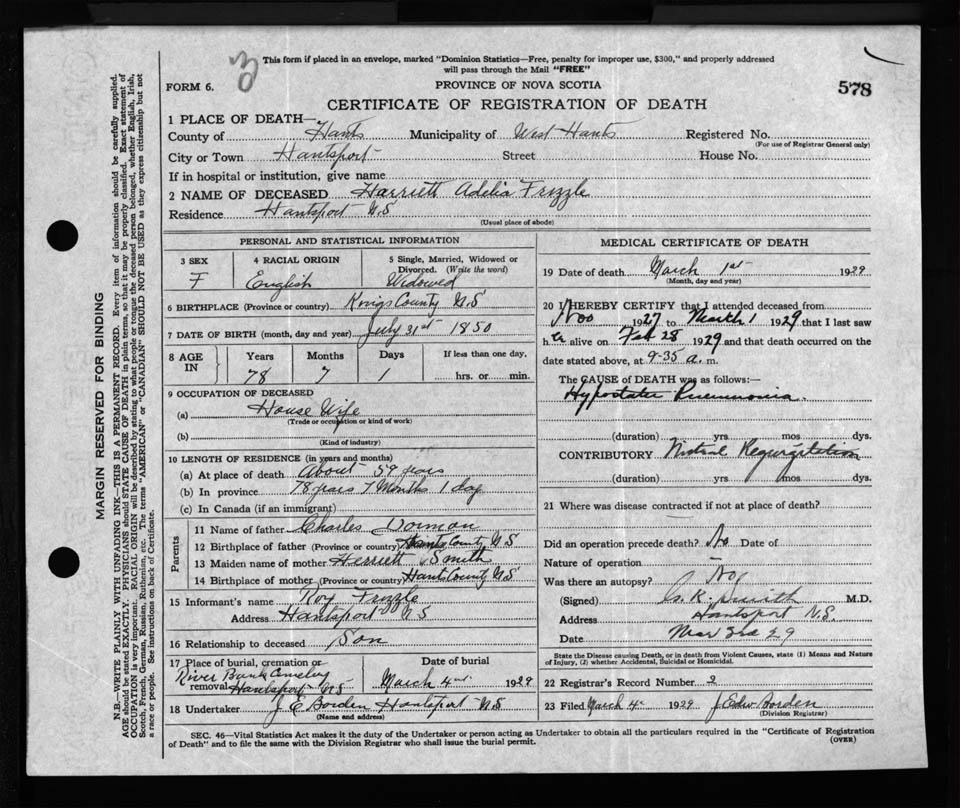 30
This form if placed in an envelope, marked "Dominion Statistics—Free, penalty for improper use, $300," and properly addressed
will pass through the Mail "FREE"
FORM 6.
PROVINCE OF NOVA SCOTIA
578
CERTIFICATE OF REGISTRATION OF DEATH
1 PLACE OF DEATH—
County of Hants Municipality of West Hants Registered No.
(For use of Registrar General only)
City or Town Hantsport Street House No.
If in hospital or institution, give name
2 NAME OF DECEASED Harriett Adelia Frizzle
Residence Hantsport N.S
(Usual place of abode)
PERSONAL AND STATISTICAL INFORMATION
3 SEX 4 RACIAL ORIGIN 5 Single, Married, Widowed or
Divorced. (Write the word)
F English Widowed
6 BIRTHPLACE (Province or country) Kings County N.S
7 DATE OF BIRTH (month, day and year) July 31st 1850
8 AGE IN Years Months Days If less than one day,
78 7 1 hrs. or min.
9 OCCUPATION OF DECEASED
(a) House Wife
(Trade or occupation or kind of work)
(b)
(Kind of industry)
10 LENGTH OF RESIDENCE (in years and months)
(a) At place of death About 59 years
(b) In province 78 years 7 Months 1 day
(c) In Canada (if an immigrant)
Parents
11 Name of father Charles Dorman
12 Birthplace of father (Province or country) Hants County N.S
13 Maiden name of mother Herriett Smith
14 Birthplace of mother (Province or country) Hants County N.S
15 Informant's name Roy Frizzle
Address Hantsport N S
16 Relationship to deceased Son
17 Place of burial, cremation or Date of burial
River Bank Cemetery
removal Hantsport N S March 4th 1929
18 Undertaker J E Borden Hantsport N S
(Name and address)
MEDICAL CERTIFICATE OF DEATH
19 Date of death March 1st 1929
(Month, day and year)
20 I HEREBY CERTIFY that I attended deceased from
Nov 1927 to March 1 1929 that I last saw
her alive on Feb 28 1929 and that death occurred on the
date stated above, at 9-35 a. m.
The CAUSE of DEATH was as follows:—
Hypostatic Pneumonia.
(duration) yrs mos dys.
CONTRIBUTORY Mitral Regurgitation
(duration) yrs mos dys.
21 Where was disease contracted if not at place of death?
Did an operation precede death? No Date of
Nature of operation —
Was there an autopsy? No
(Signed) Smith M.D.
Address Hantsport N.S.
Date Mar 29
State the Disease causing Death, or in death from Violent Causes, state (1) Means and Nature
of Injury, (2) whether Accidental, Suicidal or Homicidal.
22 Registrar's Record Number 2
23 Filed March 4th 1929 J. Edw Borden
(Division Registrar)
SEC. 46—Vital Statistics Act makes it the duty of the Undertaker or person acting as Undertaker to obtain all the particulars required in the "Certificate of Registration
of Death" and to file the same with the Division Registrar who shall issue the burial permit.
(OVER)
MARGIN RESERVED FOR BINDING
N.B.—WRITE PLAINLY WITH UNFADING INK—THIS IS A PERMANENT RECORD. Every item of information should be carefully supplied.
AGE should be stated EXACTLY. PHYSICIANS should STATE CAUSE OF DEATH in plain terms, so that it may be properly classified. Exact statement of
OCCUPATION is very important. RACIAL ORIGIN will be described by stating to what people or tongue the deceased person belonged, whether English, Irish,
Scotch, French, German, Russian, Ruthenian, etc. The terms "AMERICAN" or "CANADIAN" SHOULD NOT BE USED as they express citizenship but not
a race or people. See instructions on back of Certificate.